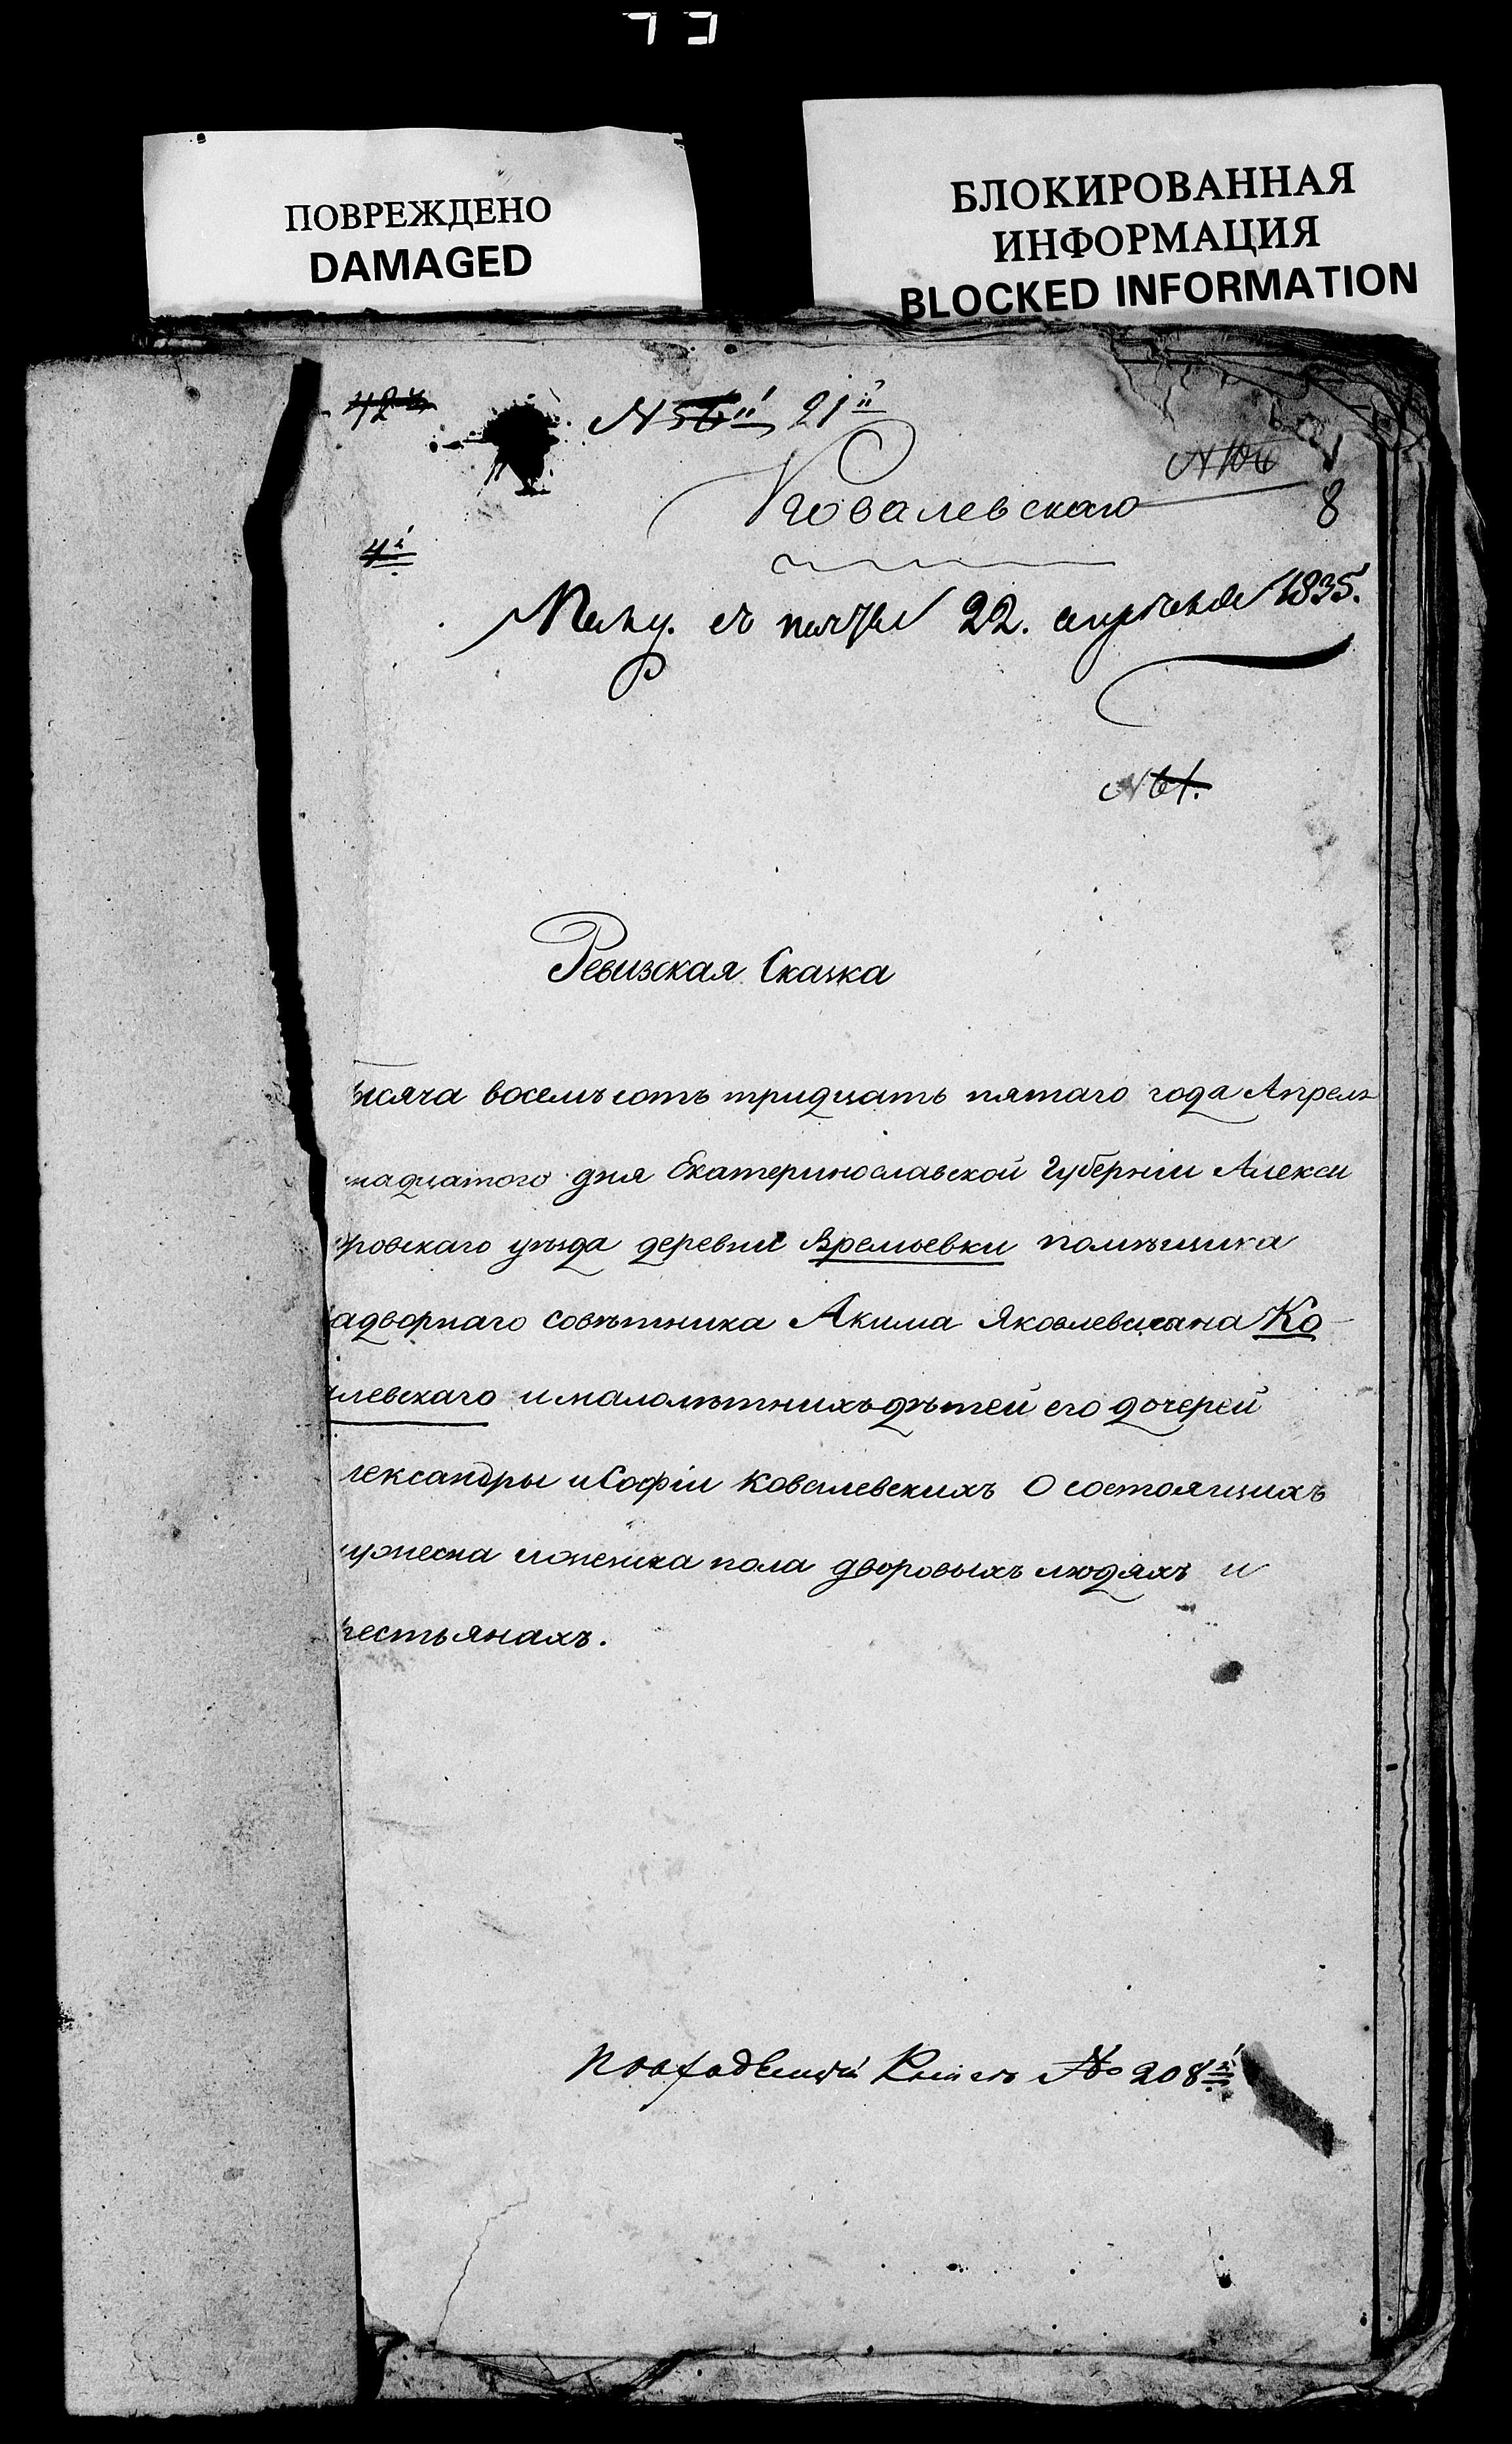 ПОВРЕЖДЕНО
DAMAGED
БЛОКИРОВАННАЯ
ИНФОРМАЦИЯ
BLOCKED INFORMATION
№ 56й 21й
№ 106
8
Ковалевскаго
4й
Полу. съ почты 22. апреля 1835.
№ 61.
Ревизская Сказка
ысяча восемъсотъ тридцать пятаго года Апреля
надцатого дня Екатеринославской Губерніи Алекси
ровскаго уѣзда деревни Времьевки помѣщика
адворнаго совѣтника Акима Яковлевича на Ко
алевскаго и малолѣтнихъ дѣтей его дочерей
лександры и Софіи Ковалевскихъ О состоящихъ
ужеска и женска пола дворовыхъ людяхъ и
рестьянахъ.
№ 208й